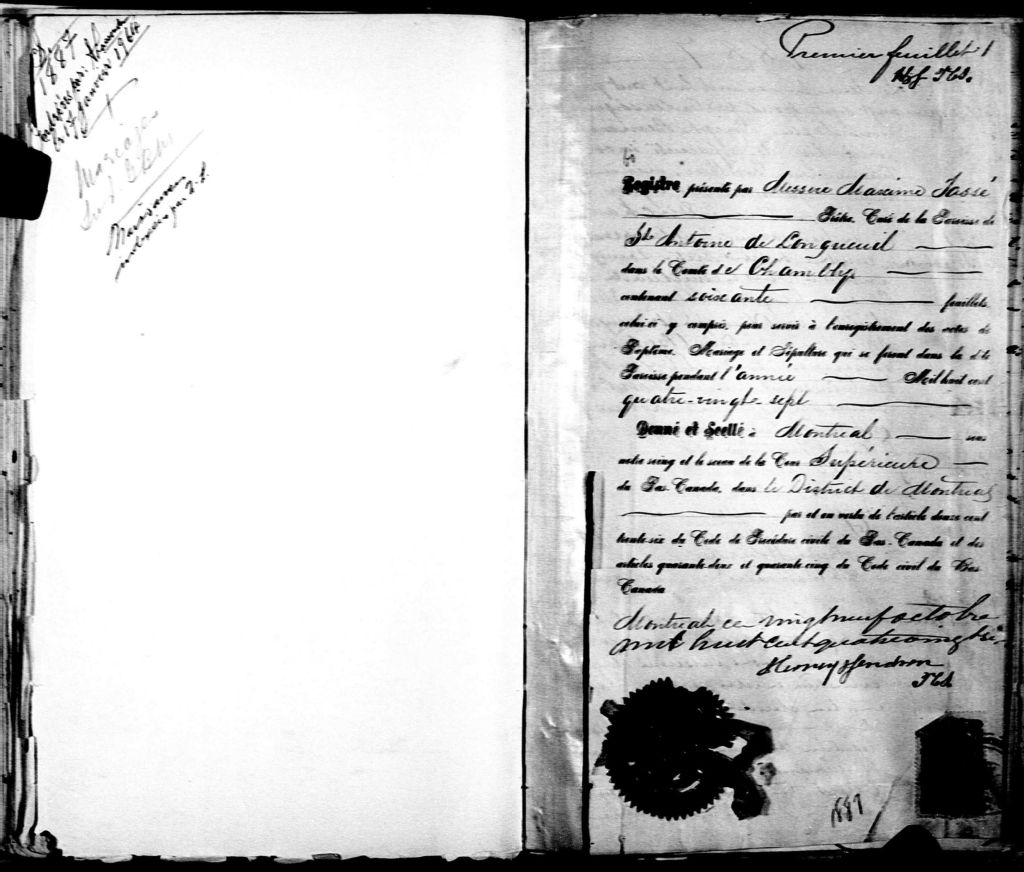 1887
17 Janvier 1964
Mariages
Premier feuillet 1
Registre présenté par Messire Maxime Tassé
Prêtre, Curé de la Paroisse de
St Antoine de Longueuil
dans le Comté de Chambly
contenant soixante feuillets,
celui-ci y compris, pour servir à l'enregistrement des actes de
Baptême, Mariage et Sépulture qui se feront dans la dite
Paroisse pendant l'année Mil huit cent
quatre-vingt-sept
Donné et Scellé à Montréal sous
notre seing et le sceau de la Cour Supérieure
du Bas-Canada, dans le District de Montréal
par et en vertu de l'article douze cent
trente-six du Code de Procédure civile du Bas-Canada et des
articles quarante-deux et quarante-cinq du Code civil du Bas
Canada
Montréal ce vingt neuf octobre
mil huit cent quatre vingt six.
1887